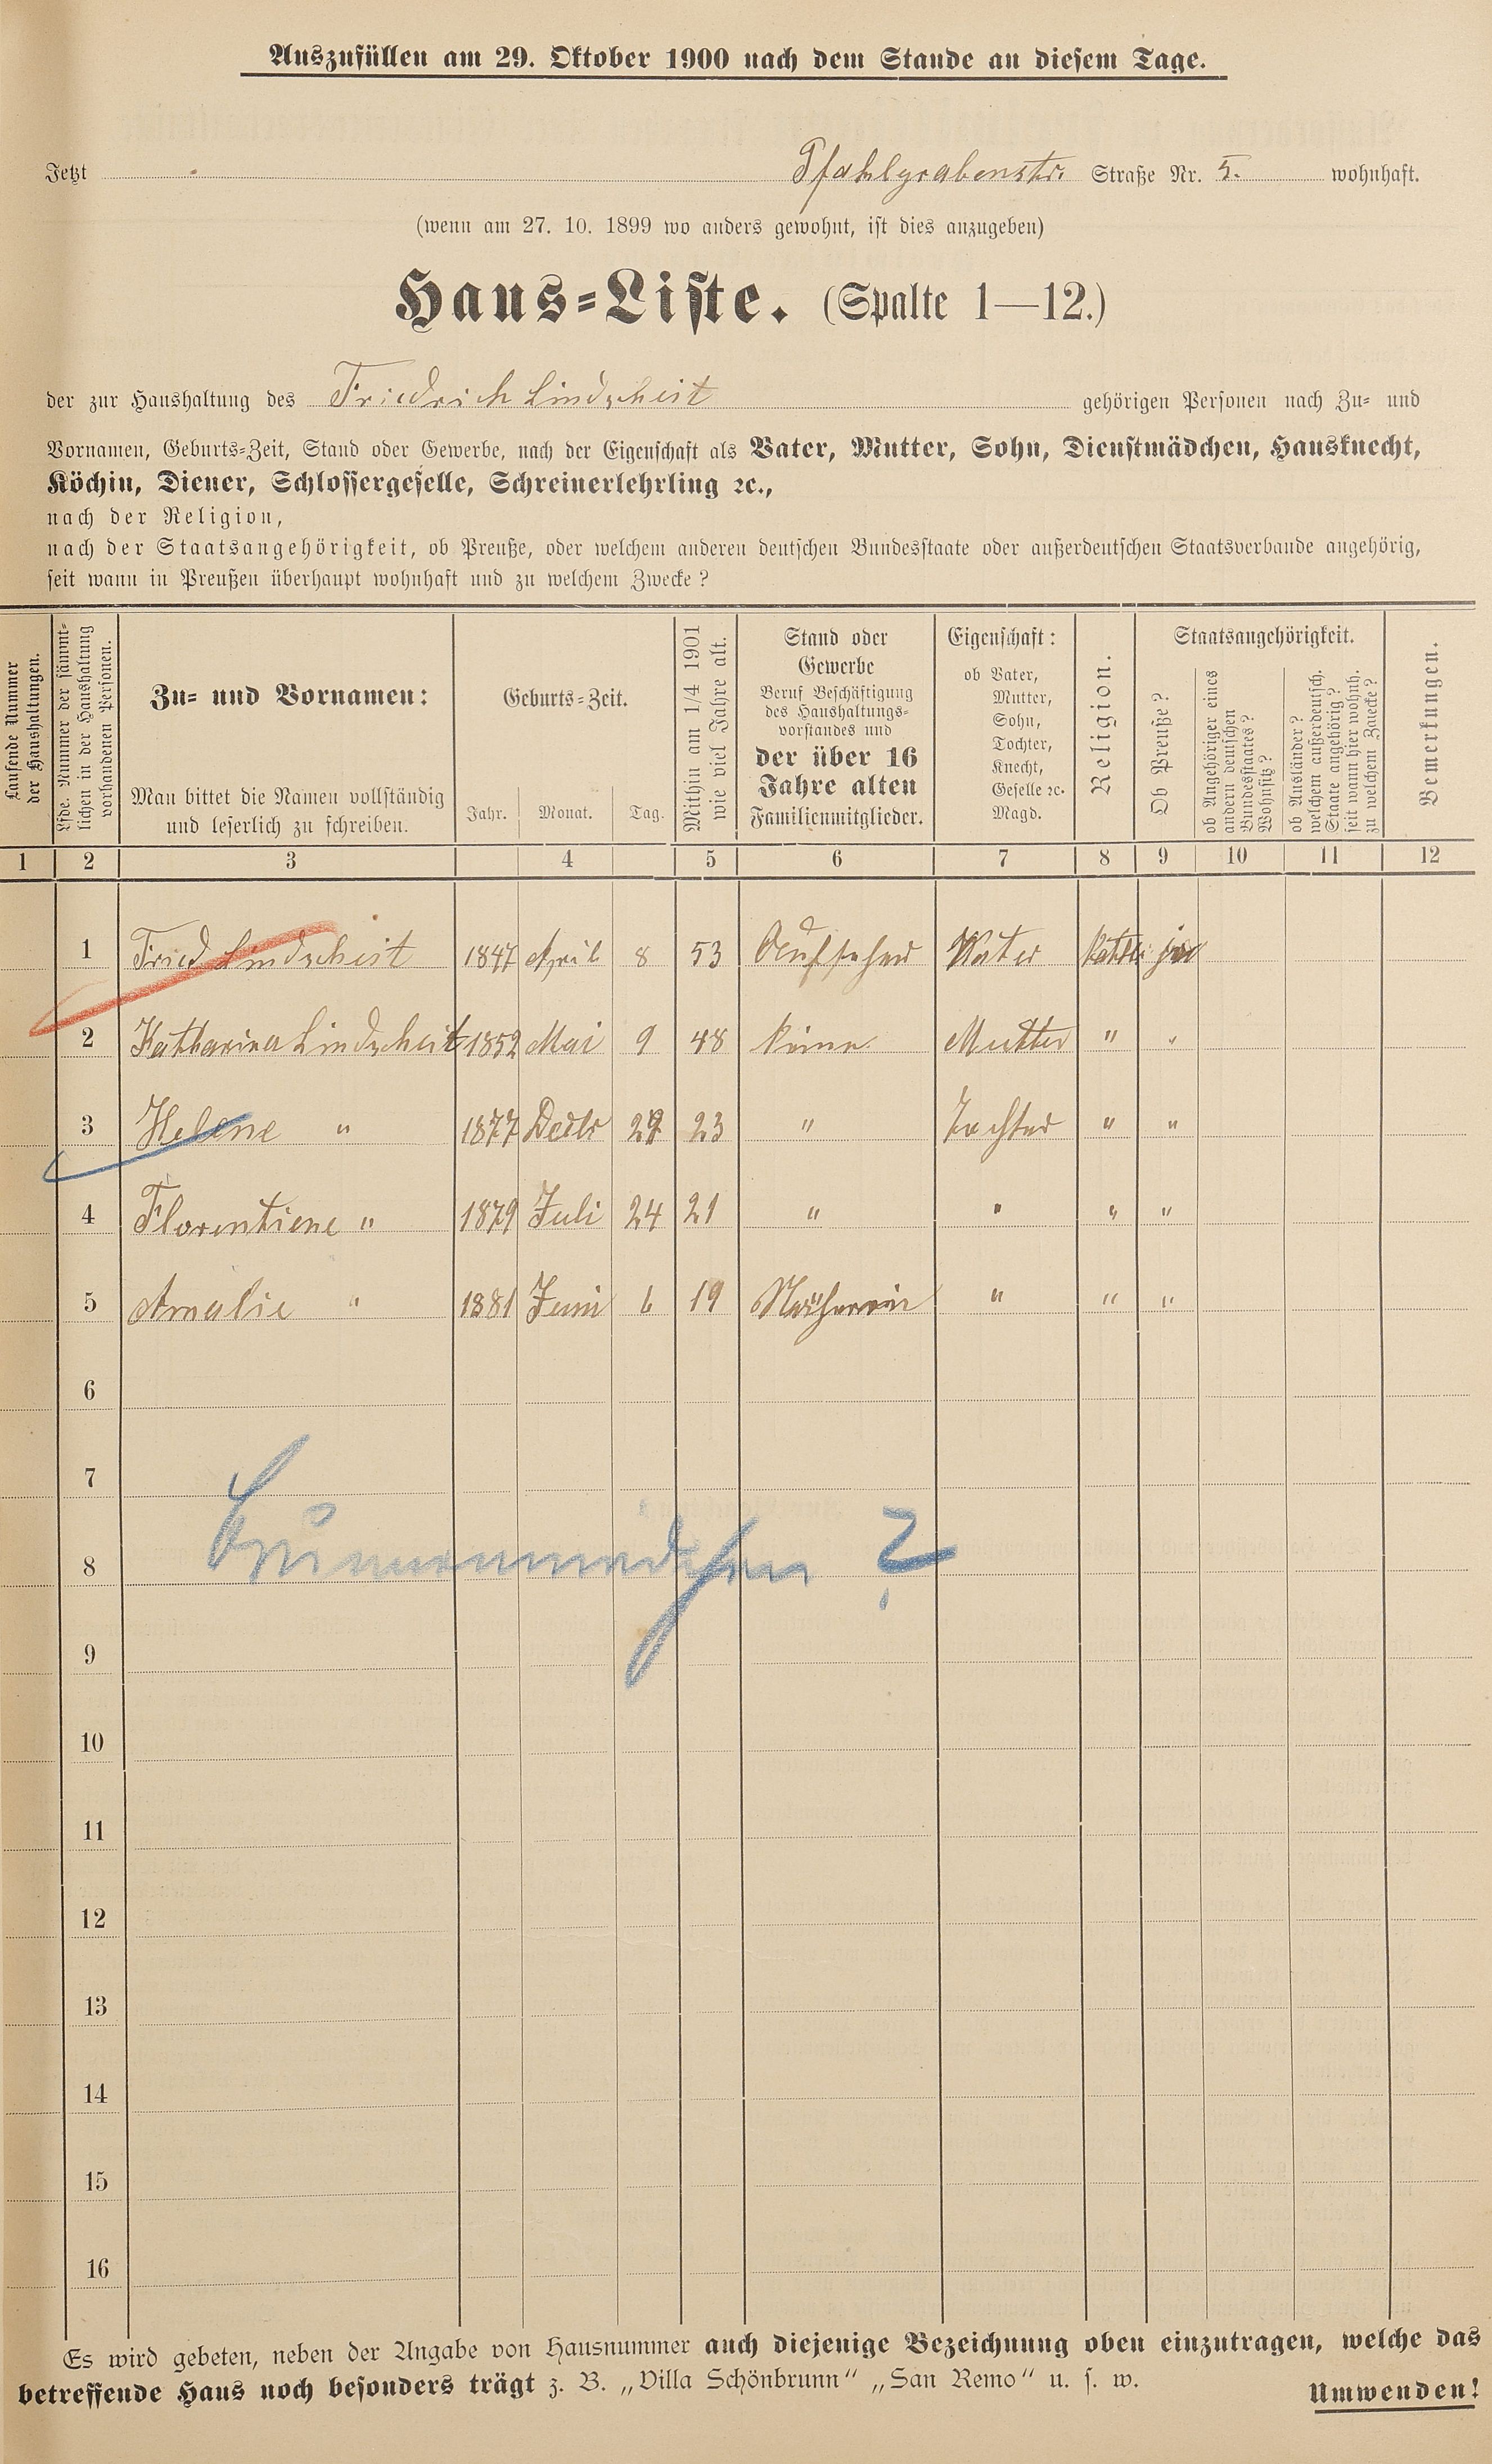 Auszufüllen am 29. Oktober 1900 nach dem Stande an diesem Tage.
Jetzt Pfahlgrabenstr. Straße Nr. 5. wohnhaft.
(wenn am 27. 10. 1899 wo anders gewohnt, ist dies anzugeben)
Haus-Liste. (Spalte 1—12.)
der zur Haushaltung des Friedrich Lindscheit gehörigen Personen nach Zu- und
Vornamen, Geburts-Zeit, Stand oder Gewerbe, nach der Eigenschaft als Vater, Mutter, Sohn, Dienstmädchen, Hausknecht,
Köchin, Diener, Schlossergeselle, Schreinerlehrling ꝛc.,
nach der Religion,
nach der Staatsangehörigkeit, ob Preuße, oder welchem anderen deutschen Bundesstaate oder außerdeutschen Staatsverbande angehörig,
seit wann in Preußen überhaupt wohnhaft und zu welchem Zwecke?
Laufende Nummer
der Haushaltungen.
Lfde. Nummer der sämmt-
lichen in der Haushaltung
vorhandenen Personen.
Zu- und Vornamen:
Man bittet die Namen vollständig
und leserlich zu schreiben.
Geburts-Zeit.
Jahr. Monat. Tag.
Mithin am 1/4 1901
wie viel Jahre alt.
Stand oder
Gewerbe
Beruf Beschäftigung
des Haushaltungs-
vorstandes und
der über 16
Jahre alten
Familienmitglieder.
Eigenschaft:
ob Vater,
Mutter,
Sohn,
Tochter,
Knecht,
Geselle ꝛc.
Magd.
Religion.
Staatsangehörigkeit.
Ob Preuße?
ob Angehöriger eines
andern deutschen
Bundesstaates?
Wohnsitz?
ob Ausländer?
welchem außerdeutsch.
Staate angehörig?
seit wann hier wohnh.
zu welchem Zwecke?
Bemerkungen.
1 2 3 4 5 6 7 8 9 10 11 12
1 Fried Lindscheit 1847 April 8 53 Aufseher Vater Kathol: ja
2 Katharina Lindscheit 1852 Mai 9 48 keine Mutter " "
3 Helene " 1877 Decbr 29 23 " Tochter " "
4 Florentiene " 1879 Juli 24 21 " " " "
5 Amalie " 1881 Juni 6 19 Näherin " " "
6
7
8 Brunnenmädchen ?
9
10
11
12
13
14
15
16
Es wird gebeten, neben der Angabe von Hausnummer auch diejenige Bezeichnung oben einzutragen, welche das
betreffende Haus noch besonders trägt z. B. „Villa Schönbrunn" „San Remo" u. s. w.
Umwenden!